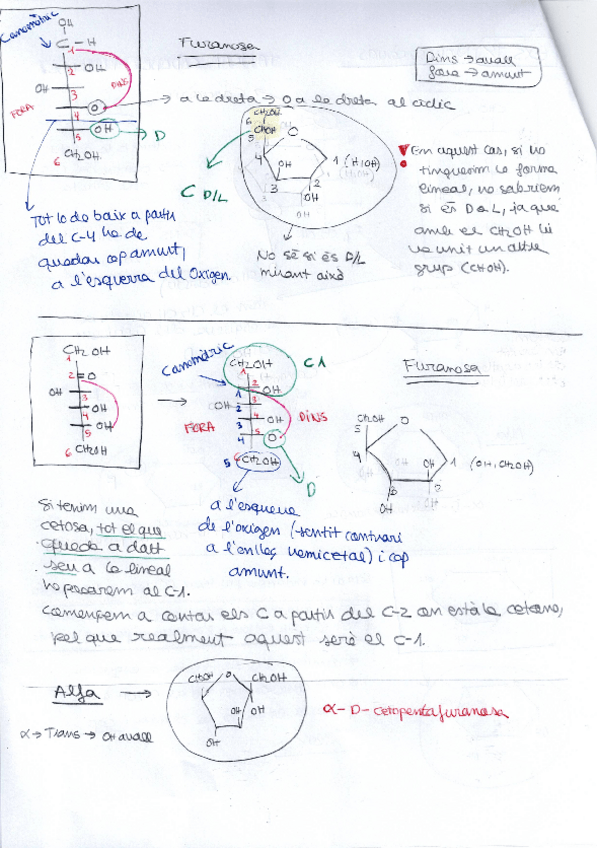 OH
Canomèric
C - H
1
2 OH
OH 3
DINS
FORA
4 O
5 OH
D
6 CH2OH
Furanosa
Dins → avall
fora → amunt
→ a la dreta → O a la dreta al cíclic
CH2OH
6
CHOH
5
O
4
OH
1 (H,OH)
3
2
OH
OH
C D/L
No sé si és D/L
mirant això
Tot lo de baix a partir
del C-4 ha de
quedar cap amunt,
a l'esquerra del Oxigen.
En aquest cas, si no
tinguessim la forma
lineal, no sabríem
si és D o L, ja que
amb el CH2OH hi
va unit un altre
grup (CHOH).
CH2OH
1
2 = O
OH 3
4 OH
5 OH
6 CH2OH
Canomèric
CH2OH
C1
1
2 OH
1
OH 3
2
FORA
DINS
4 OH
3
5 O
4
D
5 CH2OH
6
Furanosa
CH2OH
5
O
4
OH
1 (OH, CH2OH)
3
2
OH
Si tenim una
cetosa, tot el que
queda a dalt
seu a la lineal
ho posarem al C-1.
a l'esquerra
de l'oxigen (sentit contrari
a l'enllaç hemicetal) i cap
amunt.
Comencem a contar els C a partir del C-2 on està la cetona,
pel que realment aquest serà el C-1.
Alfa →
α → Trans → OH avall
CH2OH O CH2OH
OH OH
OH
α - D - cetopentafuranosa